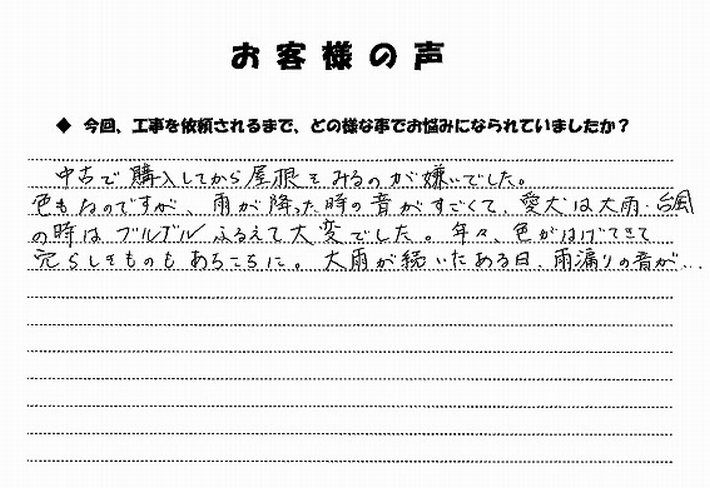 お客様の声
◆ 今回、工事を依頼されるまで、どの様な事でお悩みになられていましたか？
中古で購入してから屋根をみるのが嫌いでした。
色もなのですが、雨が降った時の音がすごくて、愛犬は大雨・台風
の時はブルブルふるえて大変でした。年々、色がはげてきて
穴らしきものもあちこちに。大雨が続いたある日、雨漏りの音が…